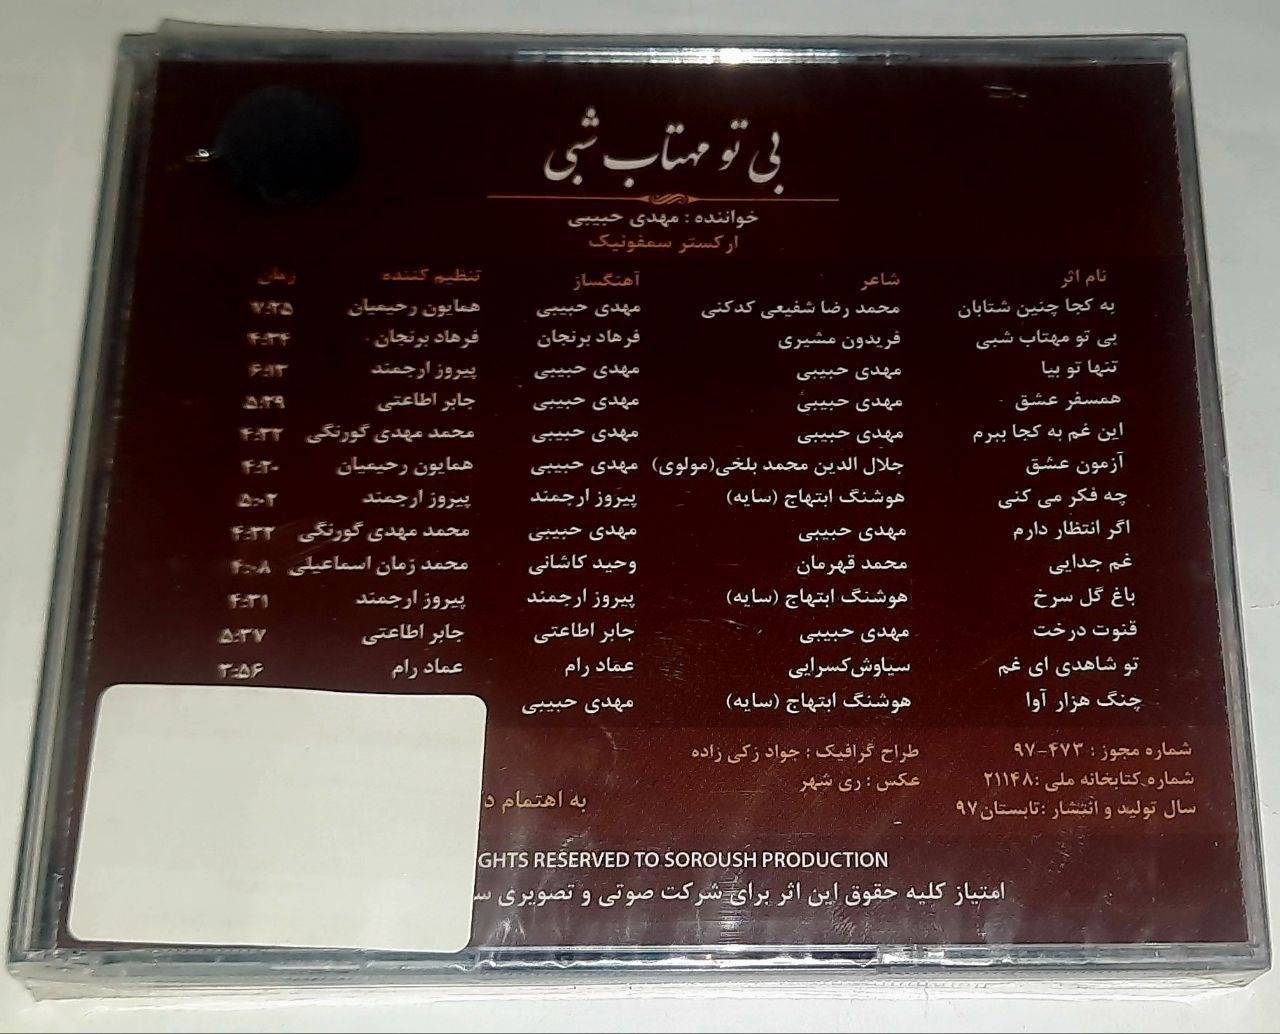 بی تو مهتاب شبی
خواننده : مهدی حبیبی
ارکستر سمفونیک
نام اثر شاعر آهنگساز تنظیم کننده زمان
به کجا چنین شتابان محمد رضا شفیعی کدکنی مهدی حبیبی همایون رحیمیان ۷:۲۵
بی تو مهتاب شبی فریدون مشیری فرهاد برنجان فرهاد برنجان ۴:۳۴
تنها تو بیا مهدی حبیبی مهدی حبیبی پیروز ارجمند ۶:۱۳
همسفر عشق مهدی حبیبی مهدی حبیبی جابر اطاعتی ۵:۲۹
این غم به کجا ببرم مهدی حبیبی مهدی حبیبی محمد مهدی گورنگی ۴:۳۲
آزمون عشق جلال الدین محمد بلخی(مولوی) مهدی حبیبی همایون رحیمیان ۴:۲۰
چه فکر می کنی هوشنگ ابتهاج (سایه) پیروز ارجمند پیروز ارجمند ۵:۰۲
اگر انتظار دارم مهدی حبیبی مهدی حبیبی محمد مهدی گورنگی ۴:۳۲
غم جدایی محمد قهرمان وحید کاشانی محمد زمان اسماعیلی ۴:۰۸
باغ گل سرخ هوشنگ ابتهاج (سایه) پیروز ارجمند پیروز ارجمند ۴:۳۱
قنوت درخت مهدی حبیبی جابر اطاعتی جابر اطاعتی ۵:۳۷
تو شاهدی ای غم سیاوش‌کسرایی عماد رام عماد رام ۳:۵۶
چنگ هزار آوا هوشنگ ابتهاج (سایه) مهدی حبیبی
شماره مجوز : ۴۷۳-۹۷ طراح گرافیک : جواد زکی زاده
شماره کتابخانه ملی :۲۱۱۴۸ عکس : ری شهر
سال تولید و انتشار :تابستان۹۷ به اهتمام
RESERVED TO SOROUSH PRODUCTION
امتیاز کلیه حقوق این اثر برای شرکت صوتی و تصویری